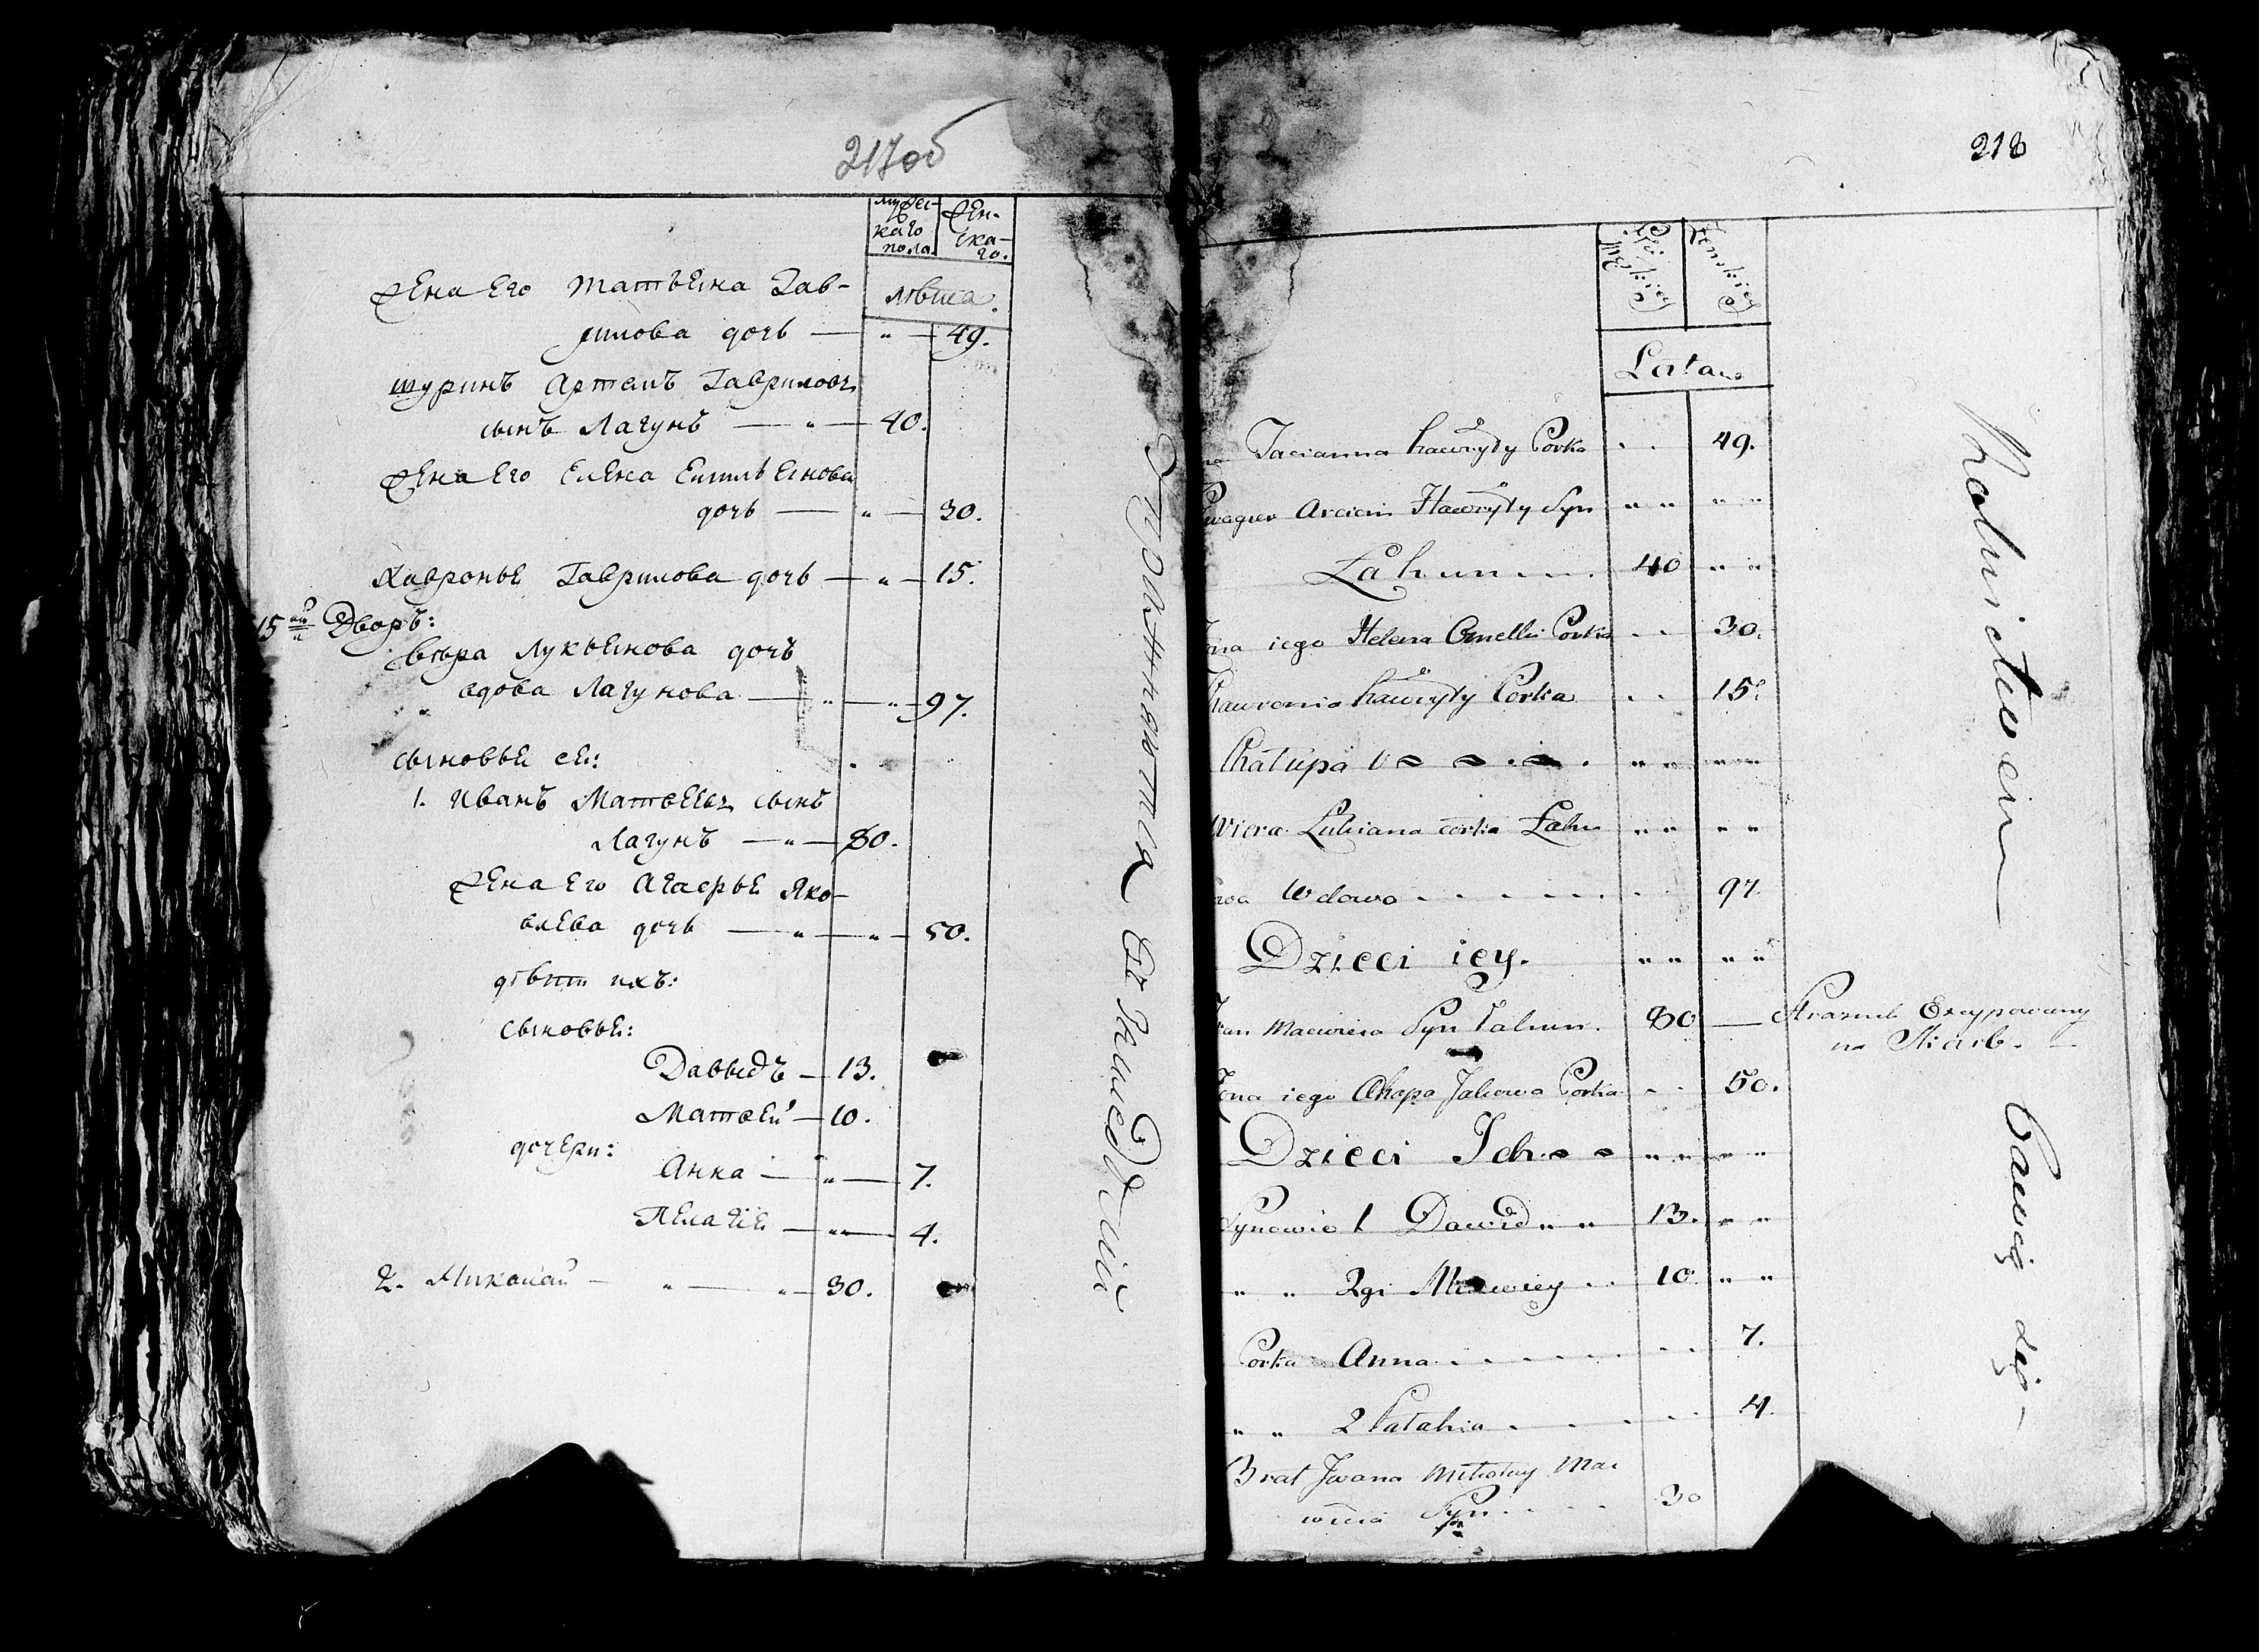 217об
мужес-
каго
пола.
жен-
ска-
го.
лѣта.
жена его Татьяна Гав-
рилова дочь — " — 49.
шуринъ Артемъ Гавриловъ
сынъ Лагунъ — " — 40.
жена его Елена Емильянова
дочь — " — 30.
Хавронья Гаврилова дочь — " — 15.
15ый Дворъ:
Вѣра Лукьянова дочь
вдова Лагунова — " — " — 97.
сыновья ея:
1. Иванъ Матвеевъ сынъ
Лагунъ — " — 80.
жена его Агафья Яко-
влева дочь — " — " — 50.
дѣти ихъ:
сыновья:
Давыдъ — 13.
Матвей — 10.
дочери:
Анна — " — 7.
Пелагія — " — 4.
2. Николай — " — " — 30.
218
Płci Męskiey
Żenskiey
Lata
Tacianna hawryły Corka . . 49.
Szwagier Arciem Hawryły Syn " " " "
Lahun . . . 40 " "
Żona iego Helena Omelli Corka . . 30.
Chawronia hawryły Corka . . 15.
Chałupa " " " "
Wiera Lukiana corka Lahu " " " "
nowa Wdowa . . . . . . 97.
Dzieci iey. " " " "
Iwan Macwieia Syn Lahun. 80 — Arasznt Excypowany
na Skarb. —
Żona iego Ahapa Jakowa Corka . . 50.
Dzieci Ich " " " "
Synowie 1 Dawid " " 13. " "
" " 2gi Macwiey . . 10. " "
Corka Anna . . . . . . . 7.
" " 2 Pałahia . . . . . 4.
Brat Jwana Mikołay Mac
wieia Syn . . . . 30